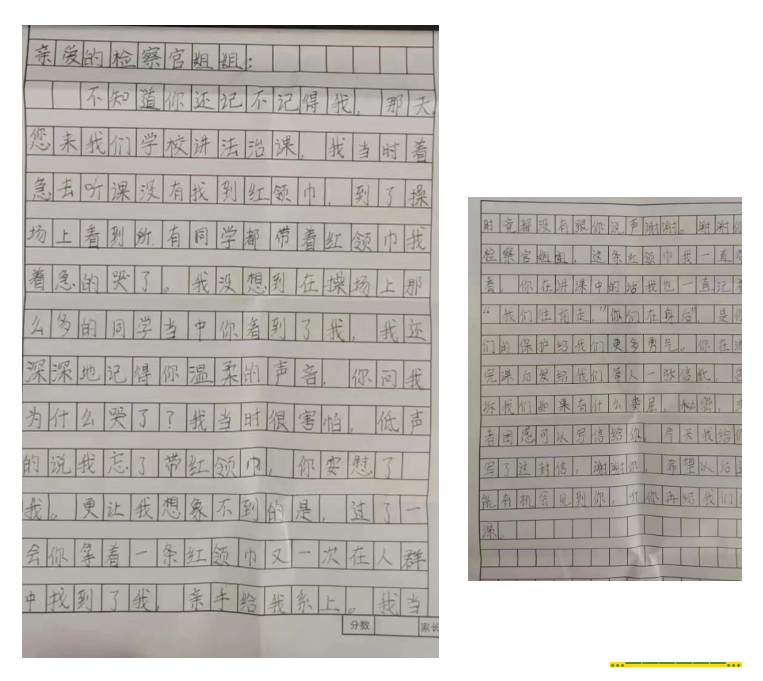 亲爱的检察官姐姐:
不知道你还记不记得我，那天
您来我们学校讲法治课，我当时着
急去听课没有找到红领巾，到了操
场上看到所有同学都带着红领巾我
着急的哭了。我没想到在操场上那
么多的同学当中你看到了我，我还
深深地记得你温柔的声音，你问我
为什么哭了？我当时很害怕，低声
的说我忘了带红领巾，你安慰了
我。更让我想象不到的是，过了一
会你拿着一条红领巾又一次在人群
中找到了我，亲手给我系上。我当
分数 家长
时竟都没有跟你说声谢谢。谢谢你
检察官姐姐，这条红领巾我一直带
着，你在讲课中的话我也一直记着
“我们往前走，”你们在身后”，是你
们的保护给我们更多勇气。你在讲
完课后发给我们每人一张信纸，告
诉我们如果有什么委屈，秘密，或
者困惑可以写信给你，今天我给你
写了这封信，谢谢你，希望以后还
能有机会见到你，听你再给我们上
课。